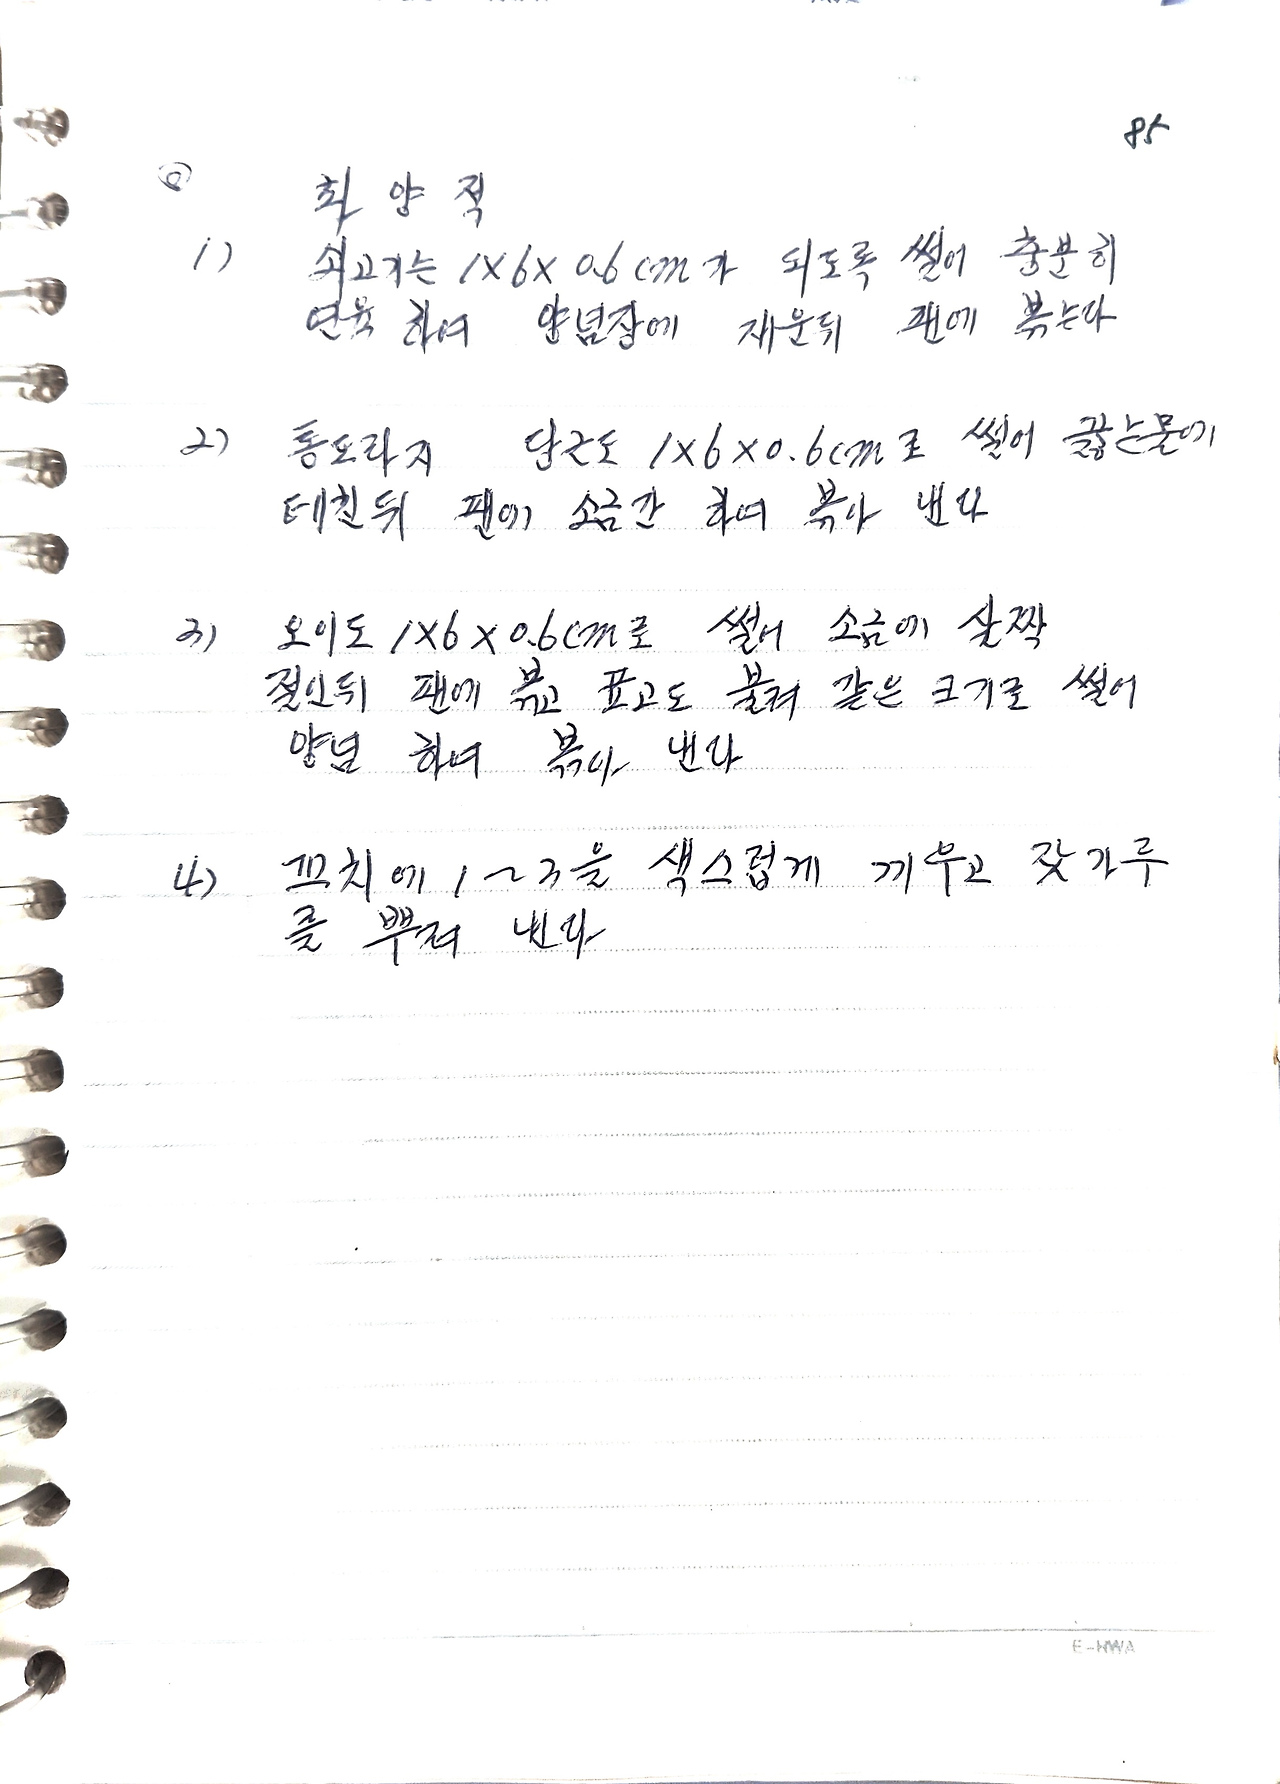 85
화양적
1) 쇠고기는 1X6X0.6cm가 되도록 썰어 충분히
연육하여 양념장에 재운뒤 팬에 볶는다
2) 통도라지 당근도 1X6X0.6cm로 썰어 끓는물에
데친뒤 팬에 소금간 하여 볶아 낸다
3) 오이도 1X6X0.6cm로 썰어 소금에 살짝
절인뒤 팬에 볶고 표고도 불려 같은 크기로 썰어
양념 하여 볶아 낸다
4) 꼬치에 1~3을 색스럽게 끼우고 잣가루
를 뿌려 낸다
E-HWA